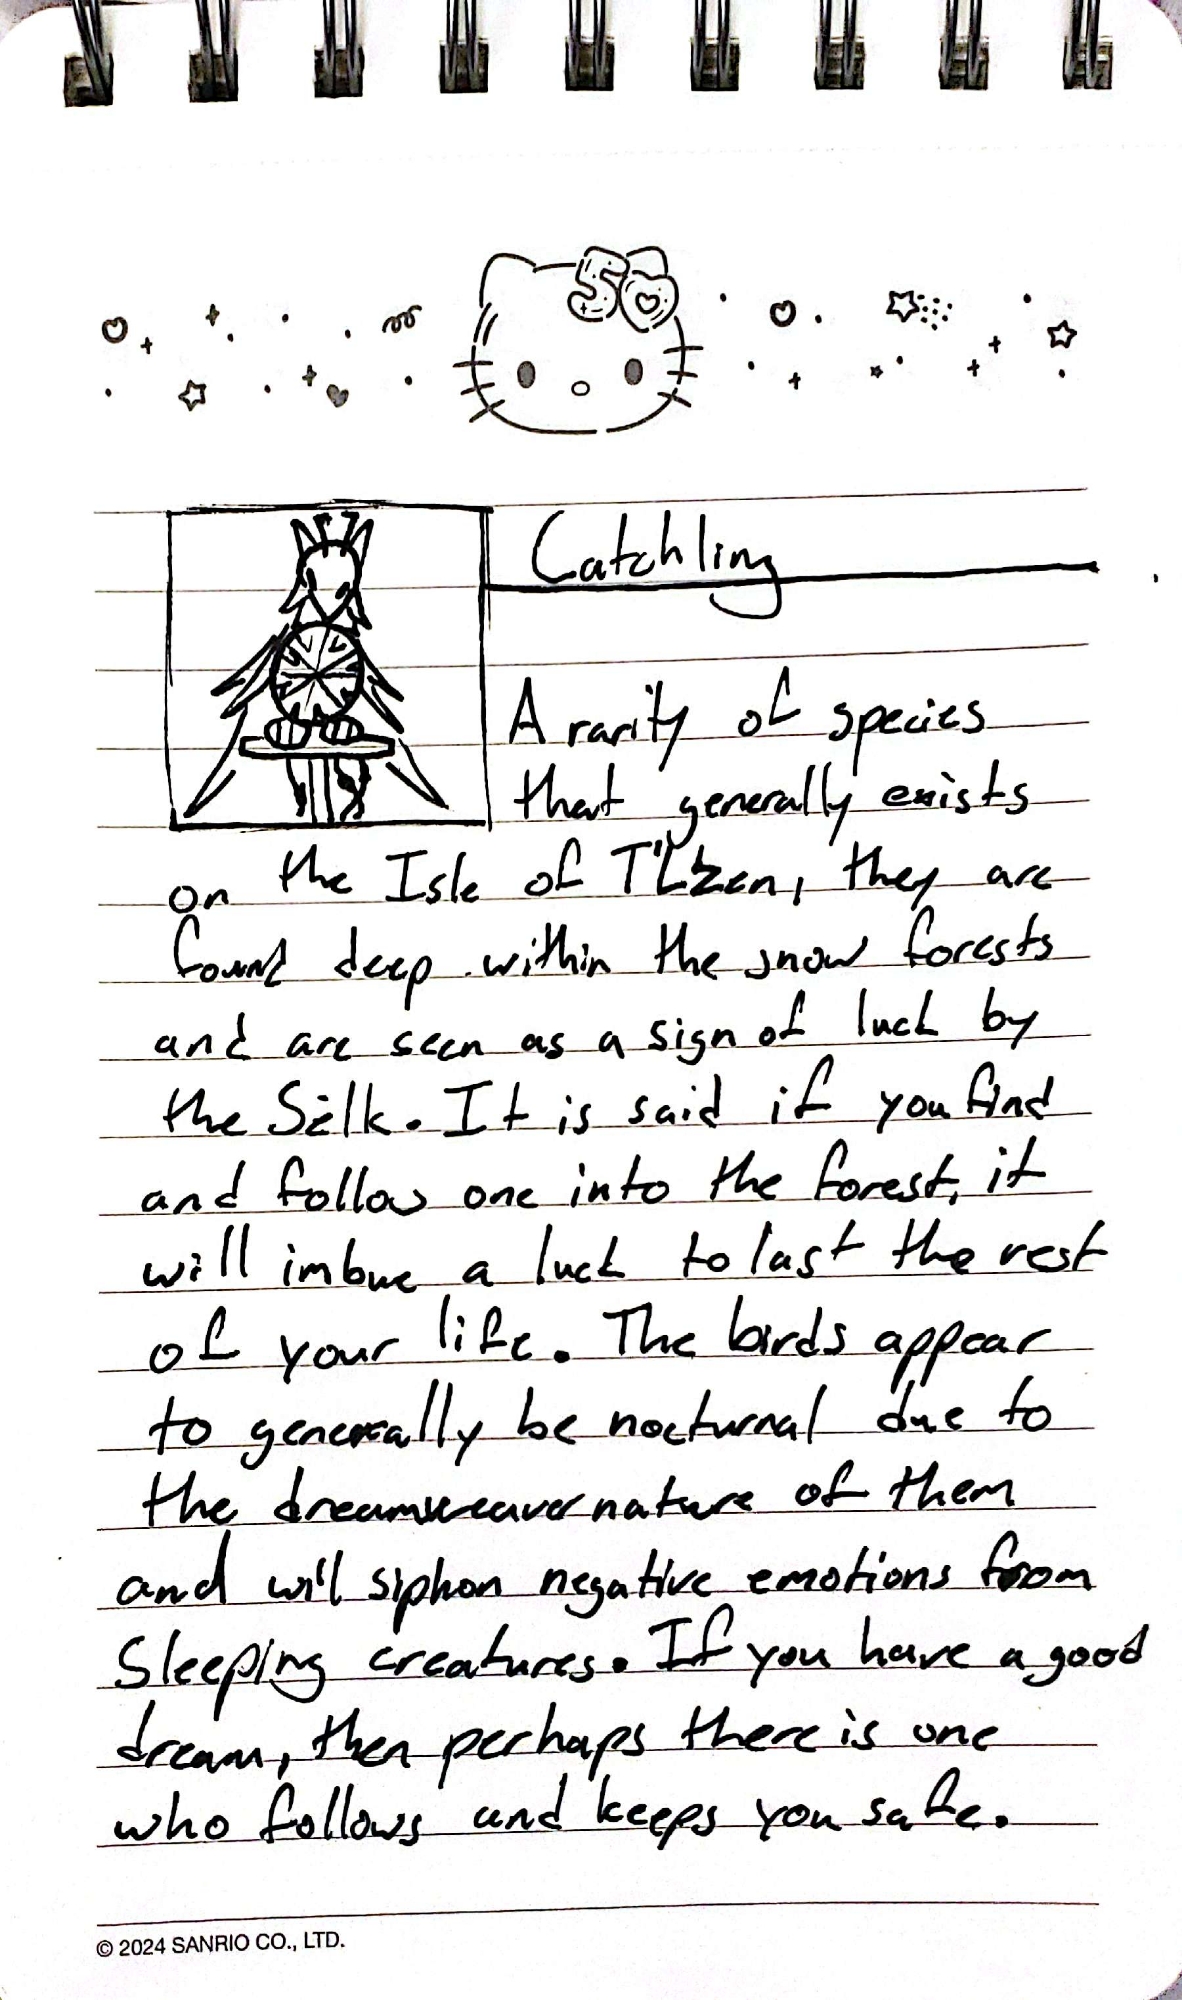 50
Catchling
A rarity of species
that generally exists
on the Isle of T'Lzen, they are
found deep within the snow forests
and are seen as a sign of luck by
the Sëlk. It is said if you find
and follow one into the forest, it
will imbue a luck to last the rest
of your life. The birds appear
to generally be nocturnal due to
the dreamweaver nature of them
and will siphon negative emotions from
Sleeping creatures. If you have a good
dream, then perhaps there is one
who follows and keeps you safe.
© 2024 SANRIO CO., LTD.